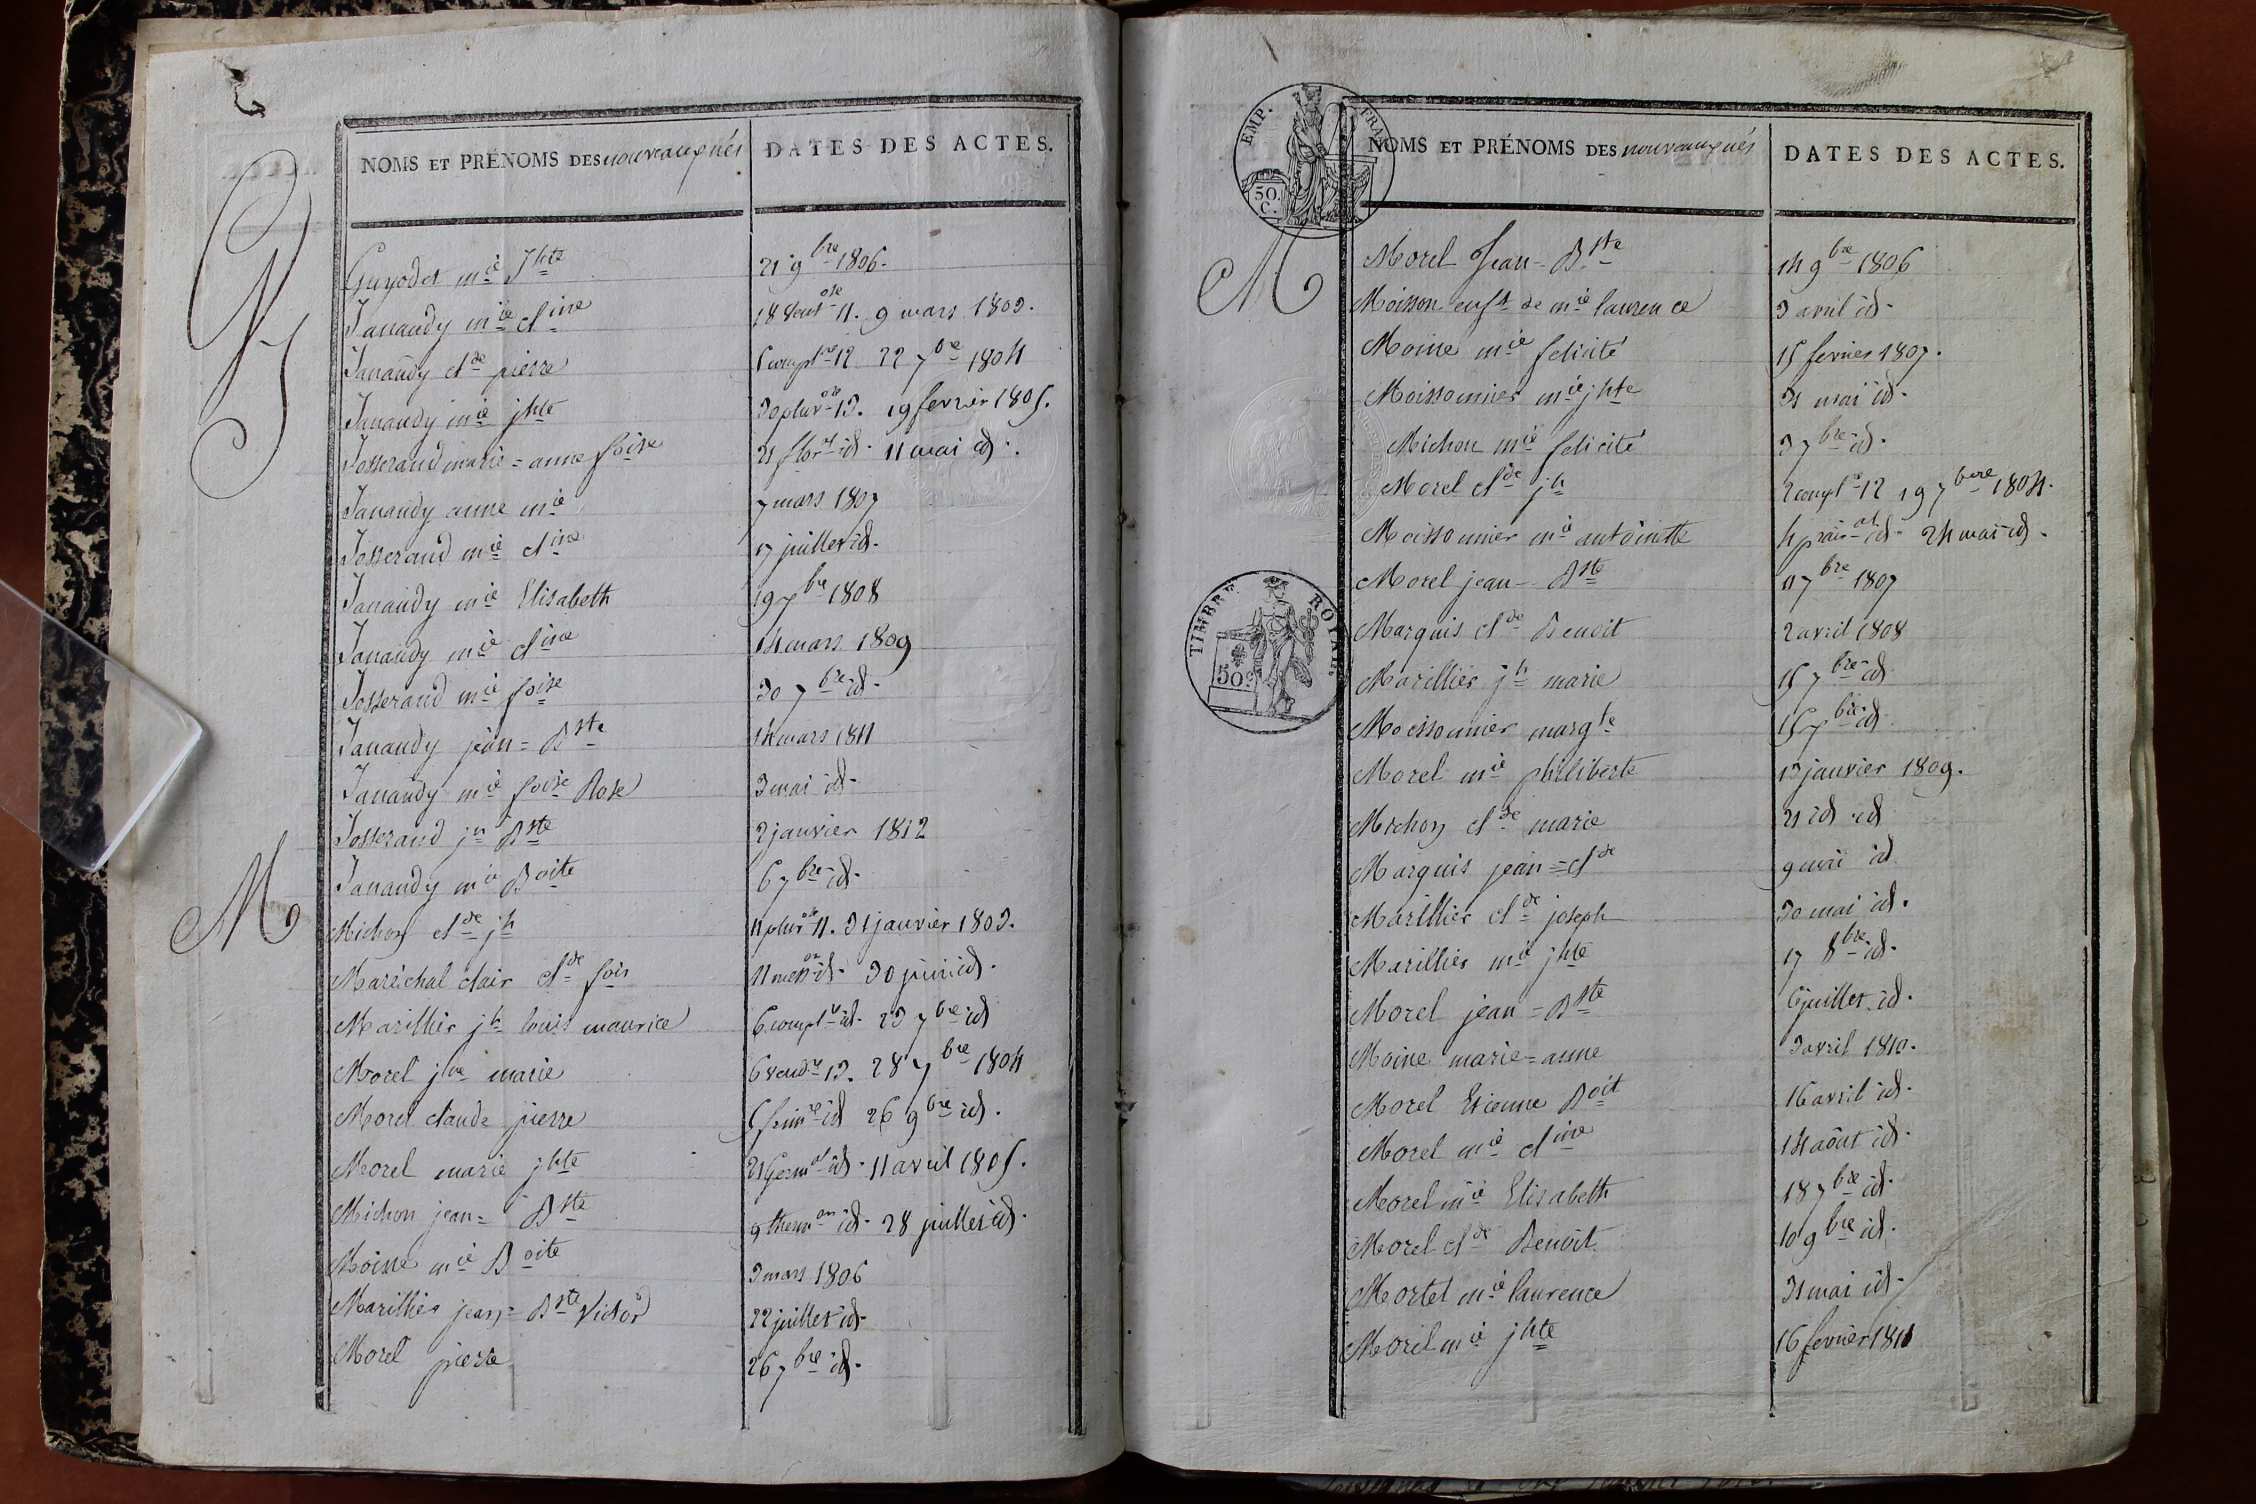 NOMS ET PRÉNOMS DES nouveaux nés DATES DES ACTES.
G
Guyodet mie Jhte 21 9bre 1806.
J
Janaudy mie Cline 18 vent ose 11. 9 mars 1803.
Janaudy Cde pierre 5 complre 12 22 7bre 1804
Janaudy mie jhte 30 pluv ose 13. 19 fevrier 1805.
Josserand marie = anne foise 21 flor al id. 11 mai id.
Janaudy anne mie 7 mars 1807
Josserand mie Cline 17 juillet id.
Janaudy mie Elisabeth 19 7bre 1808
Janaudy mie Cline 14 mars 1809
Josserand mie foise 30 7bre id.
Janaudy jean = Bste 14 mars 1811
Janaudy mie foise Rose 3 mai id.
Josserand jn Bste 2 janvier 1812
Janaudy mie Boite 6 7bre id.
M
Michon Cde jh 11 pluv ose 11. 31 janvier 1803.
Maréchal clair Cde fois 11 mess or id. 30 juin id.
Marillier jh louis maurice 6 compl re id. 23 7bre id
Morel jne marie 6 vendre 13. 28 7bre 1804
Morel claude pierre 5 frim re id 26 9bre id.
Morel marie jhte 21 Germ al id. 11 avril 1805.
Michon jean = Bste 9 therm or id. 28 juillet id.
Moine mie Boite 3 mars 1806
Marillier jean = Bste Victor 22 juillet id.
Morel pierre 26 7bre id.
EMP. FRAN
50. C.
NOMS ET PRÉNOMS DES nouveaux nés DATES DES ACTES.
M
Morel Jean - Bste 14 9bre 1806
Moisson enft de mie laurence 3 avril id.
Moine mie felicité 15 fevrier 1807.
Moissonnier mie jhte 31 mai id.
Michon mie felicité 3 7bre id.
Morel Cde jh 2 compl re 12 19 7bre 1804.
Moissonnier mie antoinette 4 prair al id. 24 mai id.
Morel jean - Bste 11 7bre 1807
TIMBRE ROYAL
50 c
Marquis Cde Benoit 2 avril 1808
Marillier jh marie 15 7bre id
Moissonnier margte 15 7bre id
Morel mie philiberte 13 janvier 1809.
Michon Cde marie 21 id id
Marquis jean = Cde 9 mai id
Marillier Cde joseph 30 mai id.
Marillier mie jhte 17 8bre id.
Morel jean = Bste 6 juillet id.
Moine marie = anne 3 avril 1810.
Morel Etienne Boit 16 avril id.
Morel mie Cline 14 août id.
Morel mie Elisabeth 18 7bre id.
Morel Cde Benoit 10 9bre id.
Mortel mie laurence 31 mai id.
Morel mie jhte 16 fevrier 1811